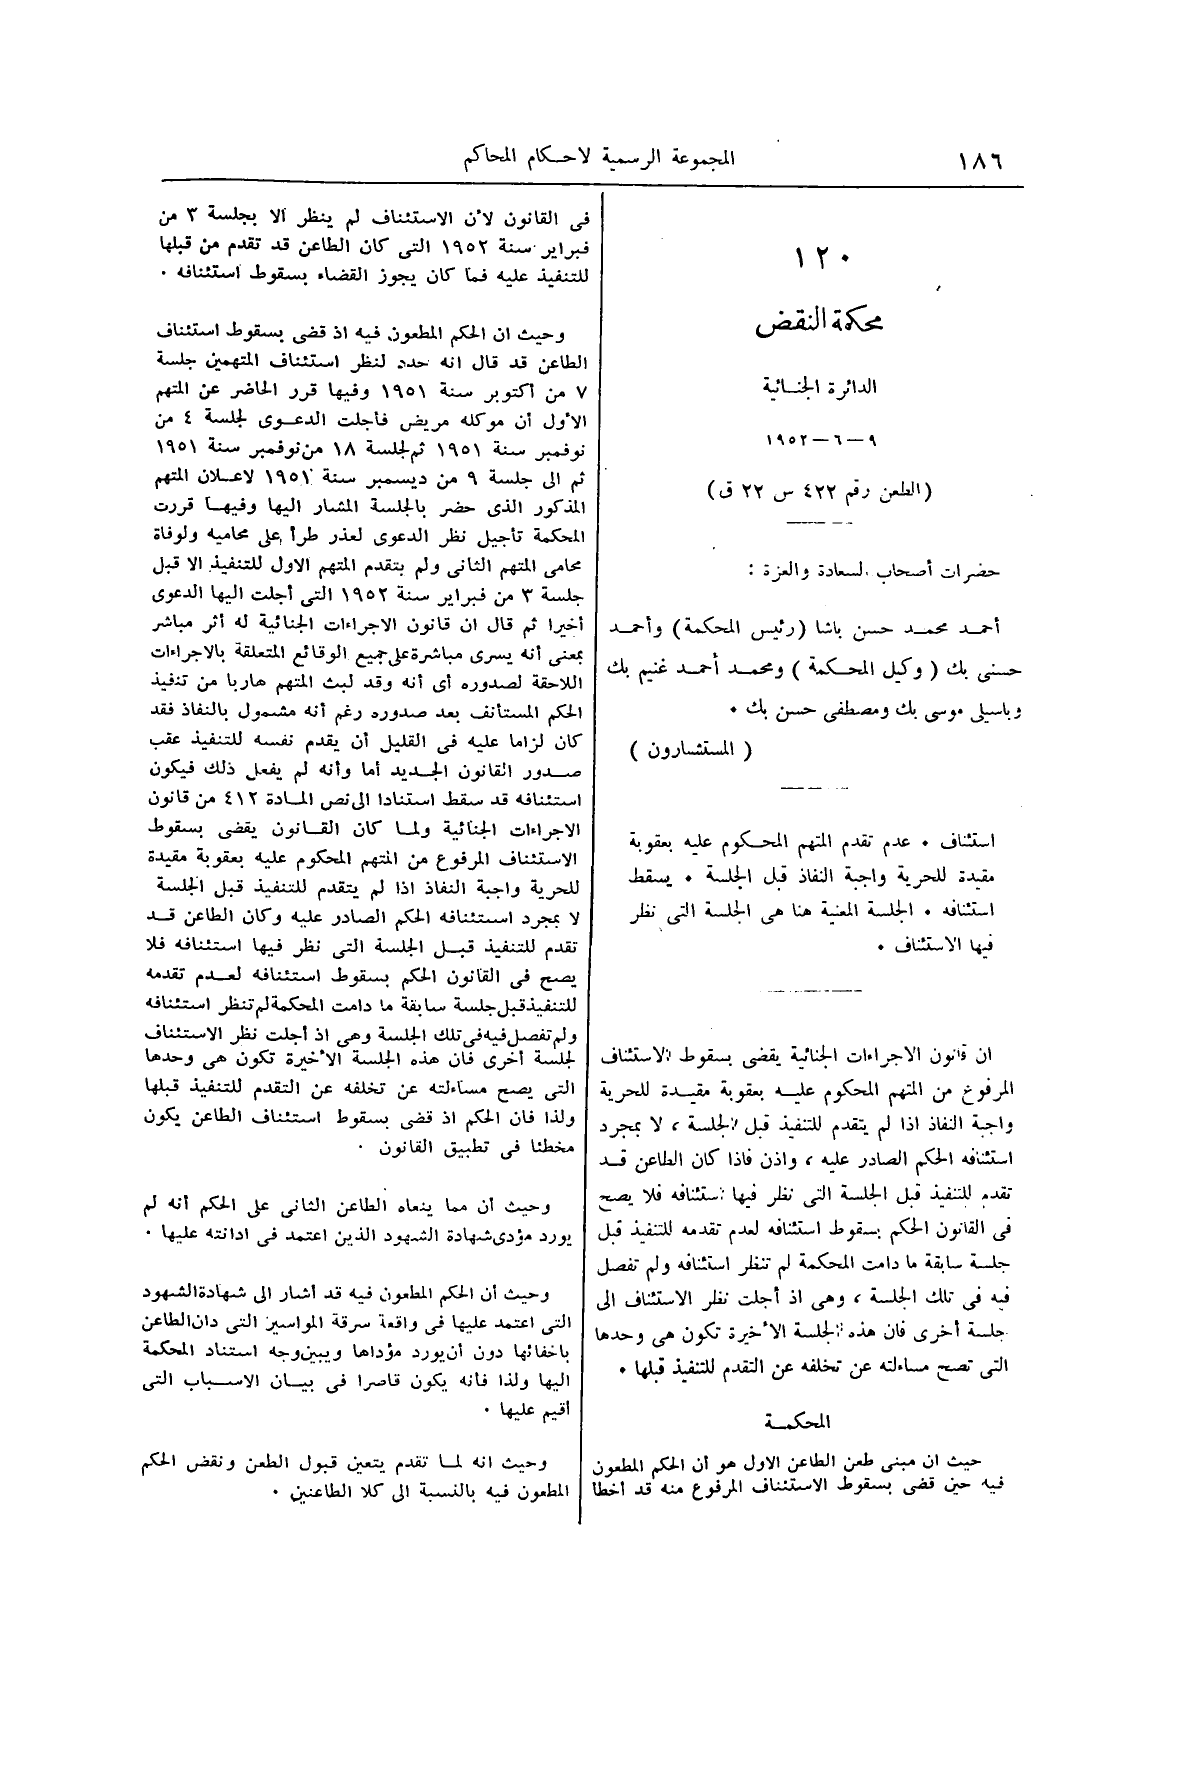 ١٨٦
المجموعة الرسمية لاحكام المحاكم
١٢٠
محكمة النقض
الدائرة الجنائية
٩ — ٦ — ١٩٥٢
(الطعن رقم ٤٢٢ س ٢٢ ق)
حضرات أصحاب السعادة والعزة :
أحمد محمد حسن باشا (رئيس المحكمة) وأحمد
حسنى بك ( وكيل المحكمة ) ومحمد أحمد غنيم بك
وباسيلى موسى بك ومصطفى حسن بك ٠
( المستشارون )
استئناف ٠ عدم تقدم المتهم المحكوم عليه بعقوبة
مقيدة للحرية واجبة النفاذ قبل الجلسة ٠ يسقط
استئنافه ٠ الجلسة المعنية هنا هى الجلسة التى نظر
فيها الاستئناف ٠
ان قانون الاجراءات الجنائية يقضى بسقوط الاستئناف
المرفوع من المتهم المحكوم عليه بعقوبة مقيدة للحرية
واجبة النفاذ اذا لم يتقدم للتنفيذ قبل الجلسة ، لا بمجرد
استئنافه الحكم الصادر عليه ، واذن فاذا كان الطاعن قد
تقدم للتنفيذ قبل الجلسة التى نظر فيها استئنافه فلا يصح
فى القانون الحكم بسقوط استئنافه لعدم تقدمه للتنفيذ قبل
جلسة سابقة ما دامت المحكمة لم تنظر استئنافه ولم تفصل
فيه فى تلك الجلسة ، وهى اذ أجلت نظر الاستئناف الى
جلسة أخرى فان هذه الجلسة الأخيرة تكون هى وحدها
التى تصح مساءلته عن تخلفه عن التقدم للتنفيذ قبلها ٠
المحكمة
حيث ان مبنى طعن الطاعن الاول هو أن الحكم المطعون
فيه حين قضى بسقوط الاستئناف المرفوع منه قد أخطأ
فى القانون لأن الاستئناف لم ينظر الا بجلسة ٣ من
فبراير سنة ١٩٥٢ التى كان الطاعن قد تقدم من قبلها
للتنفيذ عليه فما كان يجوز القضاء بسقوط استئنافه ٠
وحيث ان الحكم المطعون فيه اذ قضى بسقوط استئناف
الطاعن قد قال انه حدد لنظر استئناف المتهمين جلسة
٧ من أكتوبر سنة ١٩٥١ وفيها قرر الحاضر عن المتهم
الأول أن موكله مريض فأجلت الدعوى لجلسة ٤ من
نوفمبر سنة ١٩٥١ ثم لجلسة ١٨ من نوفمبر سنة ١٩٥١
ثم الى جلسة ٩ من ديسمبر سنة ١٩٥١ لاعلان المتهم
المذكور الذى حضر بالجلسة المشار اليها وفيها قررت
المحكمة تأجيل نظر الدعوى لعذر طرأ على محاميه ولوفاة
محامى المتهم الثانى ولم يتقدم المتهم الاول للتنفيذ الا قبل
جلسة ٣ من فبراير سنة ١٩٥٢ التى أجلت اليها الدعوى
أخيرا ثم قال ان قانون الاجراءات الجنائية له أثر مباشر
بمعنى أنه يسرى مباشرة على جميع الوقائع المتعلقة بالاجراءات
اللاحقة لصدوره أى أنه وقد لبث المتهم هاربا من تنفيذ
الحكم المستأنف بعد صدوره رغم أنه مشمول بالنفاذ فقد
كان لزاما عليه فى القليل أن يقدم نفسه للتنفيذ عقب
صدور القانون الجديد أما وأنه لم يفعل ذلك فيكون
استئنافه قد سقط استنادا الى نص المادة ٤١٢ من قانون
الاجراءات الجنائية ولما كان القانون يقضى بسقوط
الاستئناف المرفوع من المتهم المحكوم عليه بعقوبة مقيدة
للحرية واجبة النفاذ اذا لم يتقدم للتنفيذ قبل الجلسة
لا بمجرد استئنافه الحكم الصادر عليه وكان الطاعن قد
تقدم للتنفيذ قبل الجلسة التى نظر فيها استئنافه فلا
يصح فى القانون الحكم بسقوط استئنافه لعدم تقدمه
للتنفيذ قبل جلسة سابقة ما دامت المحكمة لم تنظر استئنافه
ولم تفصل فيه فى تلك الجلسة وهى اذ أجلت نظر الاستئناف
لجلسة أخرى فان هذه الجلسة الأخيرة تكون هى وحدها
التى يصح مساءلته عن تخلفه عن التقدم للتنفيذ قبلها
ولذا فان الحكم اذ قضى بسقوط استئناف الطاعن يكون
مخطئا فى تطبيق القانون ٠
وحيث أن مما ينعاه الطاعن الثانى على الحكم أنه لم
يورد مؤدى شهادة الشهود الذين اعتمد فى ادانته عليها ٠
وحيث أن الحكم المطعون فيه قد أشار الى شهادة الشهود
التى اعتمد عليها فى واقعة سرقة المواسير التى دان الطاعن
باخفائها دون أن يورد مؤداها ويبين وجه استناد المحكمة
اليها ولذا فأنه يكون قاصرا فى بيان الاسباب التى
أقيم عليها ٠
وحيث انه لما تقدم يتعين قبول الطعن ونقض الحكم
المطعون فيه بالنسبة الى كلا الطاعنين ٠